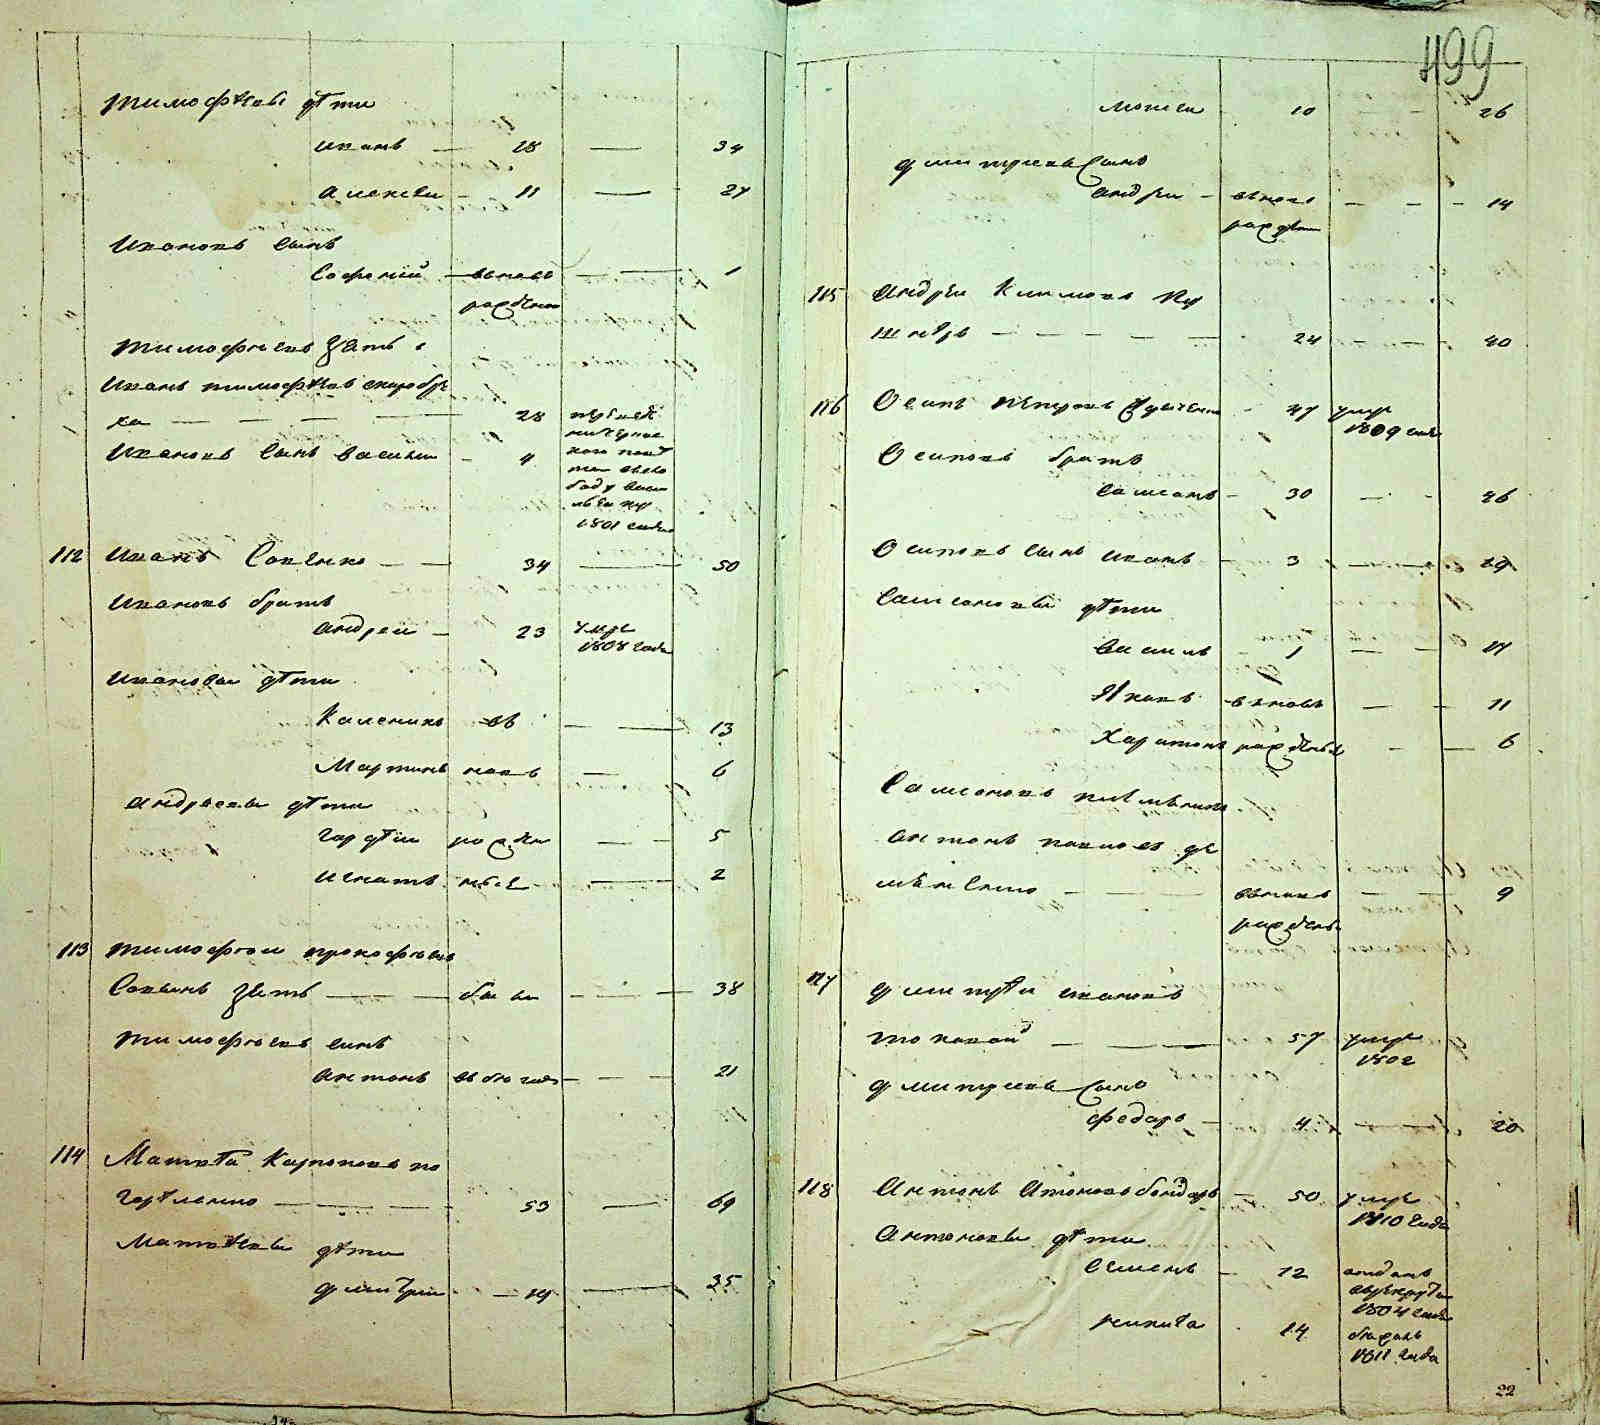 Тимофѣевы дѣти
Иванъ — 18 — 34
Алексеи — 11 — 27
Ивановъ сынъ
Софоній — въново — 1
рождѣнъ
Тимофѣевъ зять
Иванъ Тимофѣевъ
ха — — — — 28
Ивановъ сынъ василии — 4
боду васи
1801 года
112 Иванъ Савенко — — 34 — 50
Ивановъ братъ
Андреи — 23 умре
1808 года
Ивановы дѣти
Каленикъ въ — — 13
Мартинъ новъ — 6
Андреевы дѣти
Гордѣи рождѣн — — 5
Игнатъ — 2
113 Тимофѣи Прокофьевъ
Савинъ зять — — бывш — — — 38
Тимофѣевъ синъ
Антонъ въ бѣгахъ — — — 21
114 Матвѣй Карповъ по
горѣленко — — — — 53 — 69
Матвѣевы дѣти
Дмитрии — 19 — 35
499
Моисеи 10 — — 26
Дмитріевъ сынъ
Андреи — въново — — — 14
рождѣн
115 Андреи Климовъ Ку
шнѣръ — — — — — 24 — — 40
116 Осипъ Петровъ — 47 умре
1809 года
Осиповъ братъ
Самсонъ — 30 — 46
Осиповъ сынъ Иванъ — 3 — — 19
Самсоновы дѣти
Василь — 1 — — 17
Яковъ въновь — — 11
Харитонъ рождѣны — — 6
Самсоновъ племѣникъ
Антонъ Павловъ Де
мѣненко — — въновь — — 9
рождѣнъ
117 Дмитрѣи Ивановъ
Токовой — — — 57 умре
1802
Дмитріевъ сынъ
Федоръ — 4 — — 20
118 Антонъ Антоновъ бондаръ — 50 умре
1810 года
Антоновы дѣти
Семенъ — 12 отданъ
врекруты
1804 года
Никита 14 бѣжалъ
1811 года
22